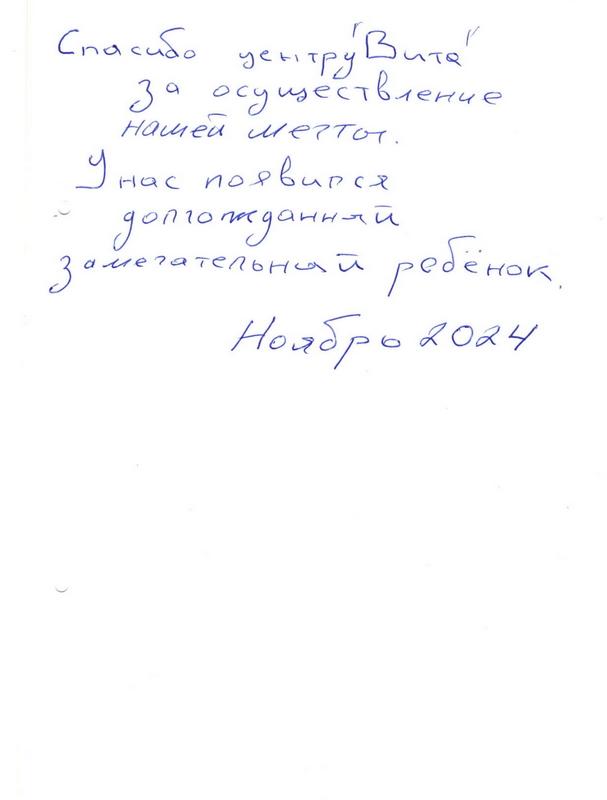 Спасибо центру "Вита"
за осуществление
нашей мечты.
У нас появился
долгожданный
замечательный ребёнок.
Ноябрь 2024